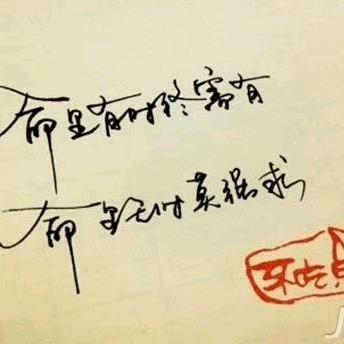 命里有时终需有
命里无时莫强求
不吃
J